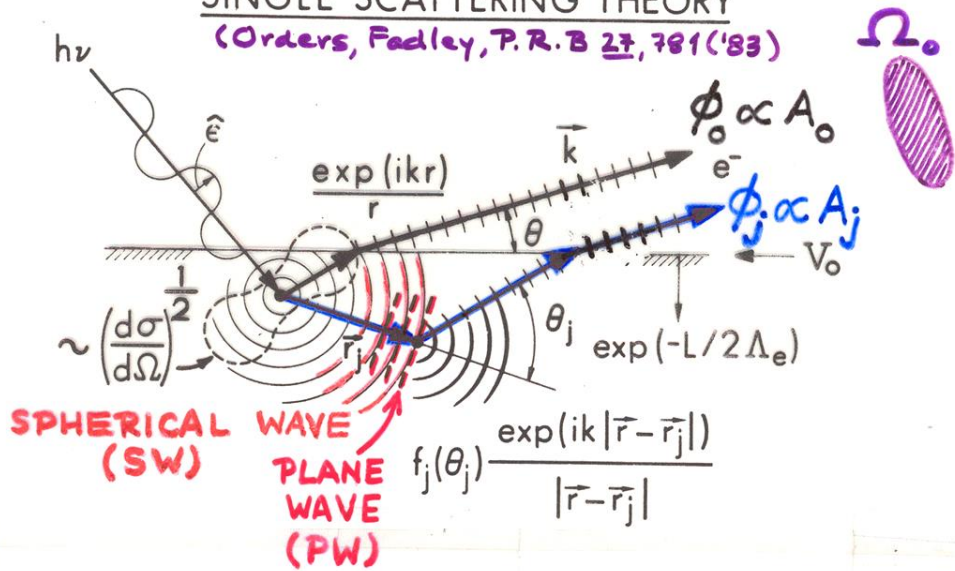 SINGLE SCATTERING THEORY
(Orders, Fadley, P.R.B 27, 781 ('83)
Ω₀
hν
ε̂
exp(ikr)
r
k⃗
ϕ₀ ∝ A₀
e⁻
ϕⱼ ∝ Aⱼ
θ
V₀
~ (dσ/dΩ)^½
r⃗ⱼ
θⱼ
exp(-L/2Λₑ)
SPHERICAL WAVE
(SW)
PLANE
WAVE
(PW)
fⱼ(θⱼ) exp(ik|r⃗-r⃗ⱼ|)
|r⃗-r⃗ⱼ|